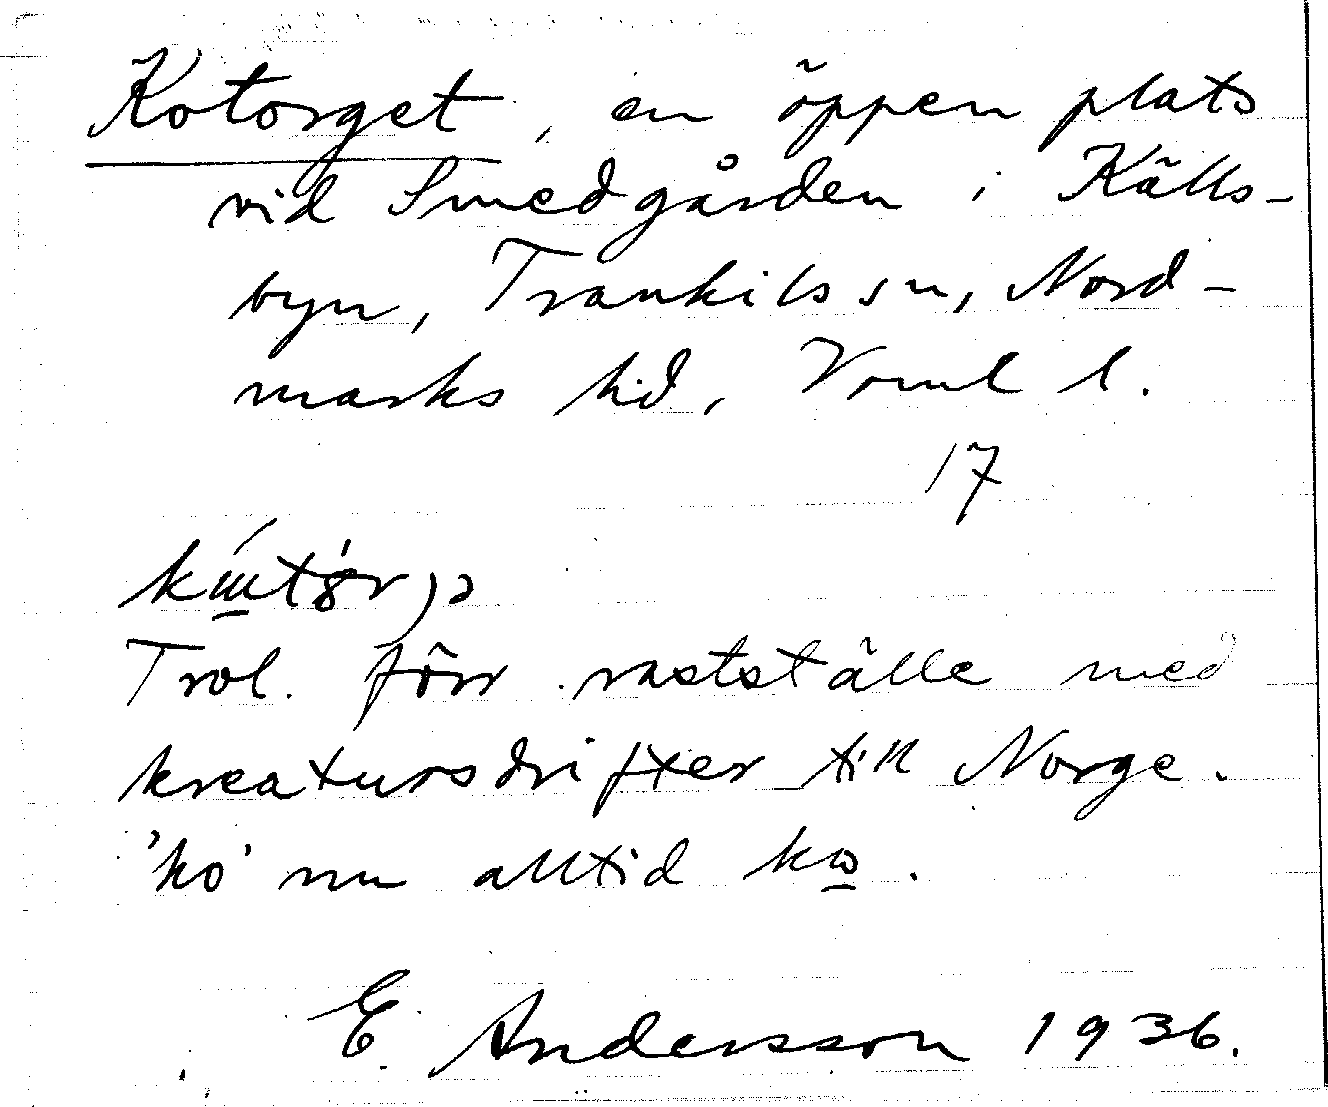 Kotorget, en öppen plats
vid Smedgården i Källs-
byn, Trankils sn, Nord-
marks hd, Vrml l.
17
Trol. förr rastställe med
kreatursdrifter till Norge.
'ko' nu alltid
E. Andersson 1936.